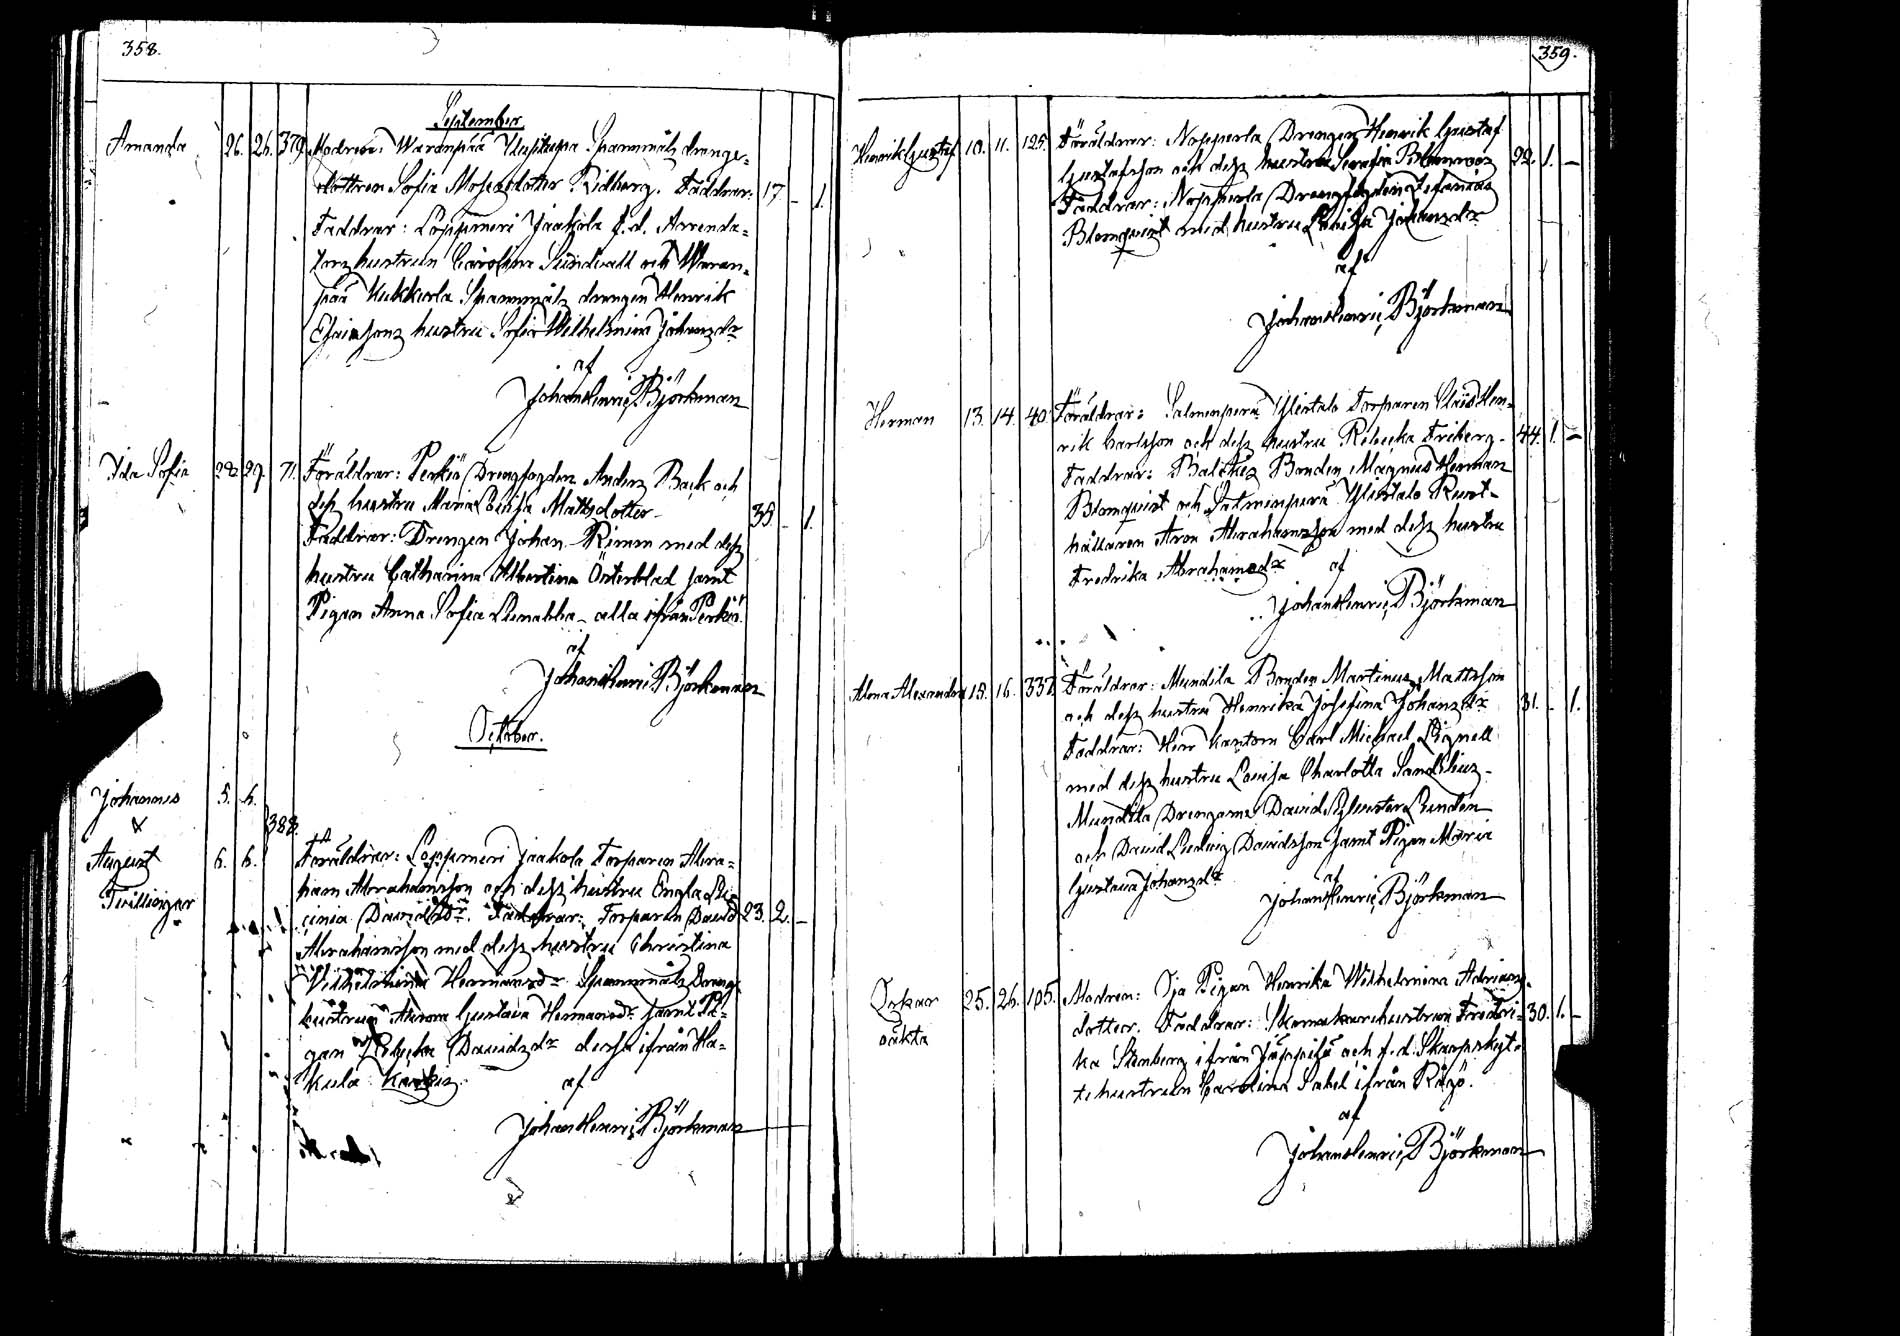 358.
September
Amanda 26. 26. 379. Modren: Waranpää Uusitupa Spanmåls drengs-
dottren Sofia Mosesdotter Ridberg. Faddrar: 17 - 1.
Faddrar: Loppmeri Jaakola f.d. Arrenda-
tors hustrun Carolina Sundvall och Waran-
pää Kukkurla Spanmåls drengen Henrik
Esaiasons hustru Sofia Wilhelmina Johansdr
af
Johan Henric Björkman
Ida Sofia 28. 29. 71. Föräldrar: Perkiö Drengfogden Anders Back och
dess hustru Maria Lovisa Mattsdotter - 35. - 1.
Faddrar: Drengen Johan Rimm med dess
hustru Catharina Albertina Österblad samt
Pigan Anna Sofia - alla ifrån Perkiö.
af
Johan Henric Björkman
October.
Johannes 5. 6.
&
388.
August 6. 6. Föräldrar: Loppmeri Jaakola Torparen Abra-
ham Abrahamsson och dess hustru Engla Lu-
cinia Davidsdr. Faddrar: Torparen David 23. 2. -
Tvillingar
Abrahamsson med dess hustru Christina
Wilhelmina Hermansdr Spanmåls Drengs
hustrun Aurora Gustava Hermansdr samt Pi-
gan Rebecka Davidsdr dessa ifrån Ha-
kula Kärkis.
af
Johan Henric Björkman
359.
Henrik Gustaf 10. 11. 125. Föräldrar: Nopperla Drengen Henrik Gustaf
Gustafsson och dess hustru Serafia Blomroos 22. 1. -
Faddrar: Nopperla Drengfogden Zefanias
Blomquist med hustru Lovisa Johansdr
af
Johan Henric Björkman
Herman 13. 14. 40. Föräldrar: Salmenperä Ylistalo Torparen Claës Hen-
rik Carlsson och dess hustru Rebecka Friberg - 44. 1. -
Faddrar: Bonden Magnus Herman
Blomquist och Salmenperä Ylistalo Rust-
hållaren Aron Abrahamsson med dess hustru
Fredrika Abrahamsdr af
Johan Henric Björkman
Alma Alexandra 15. 16. 337. Föräldrar: Mundila Bonden Martinus Mattsson
och dess hustru Henrika Josefina Johansdr 31. - 1.
Faddrar: Herr Kantorn Carl Michael Lignell
med dess hustru Lovisa Charlotta Sandelius -
Mundila Drengarne David Sylvester Lindén
och David Ludvig Davidsson samt Pigan Maria
Gustava Johansdr
af
Johan Henric Björkman
Oskar 25. 26. 105. Modren: Oja Pigan Henrika Wilhelmina Adrians-
oäkta
dotter. Faddrar: Skomakarehustrun Fredri- 30. 1. -
ka Stenberg ifrån Jäppilä och f.d. Skarpskyt-
tehustrun Carolina Sabel ifrån Rågö.
af
Johan Henric Björkman